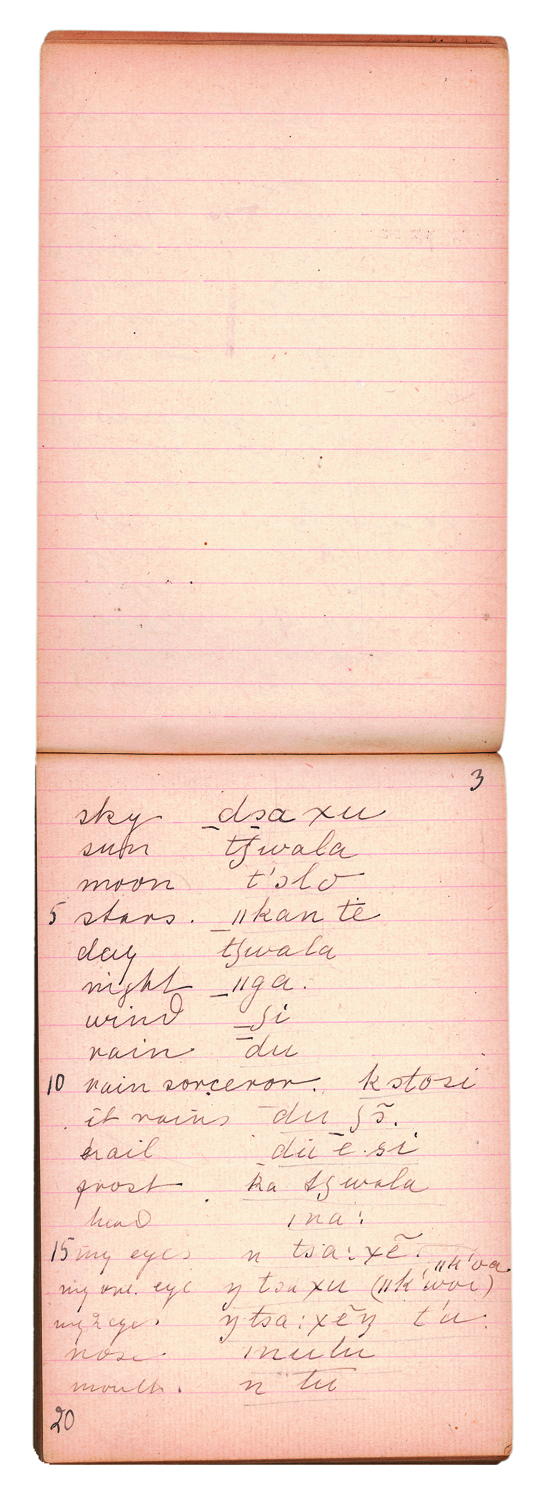 3
sky _dɔa xu
sun tʒwala
moon t'ɔlo
5 stars. _ǁkan të
day tʒwala
night _ǁga.
wind _ʒi
rain ¯du
10 rain sorceror. kstosi
it rains ¯du ʒɔ̃.
hail dū ē.si
frost ka tʒwala
head ǀna:
15 my eyes n tsa:xẽ.
my one. eye ŋ tsaxu (ǁk'woe) ǁk'oa
my 2 eyes. ŋ tsa:xẽŋ t'u.
nose. ǀnutu
mouth. n tu
20